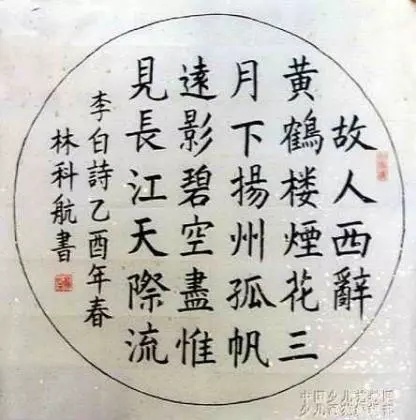 故人西辭
黄鶴楼煙花三
月下揚州孤帆
遠影碧空盡惟
見長江天際流
李白詩乙酉年春
林科航書